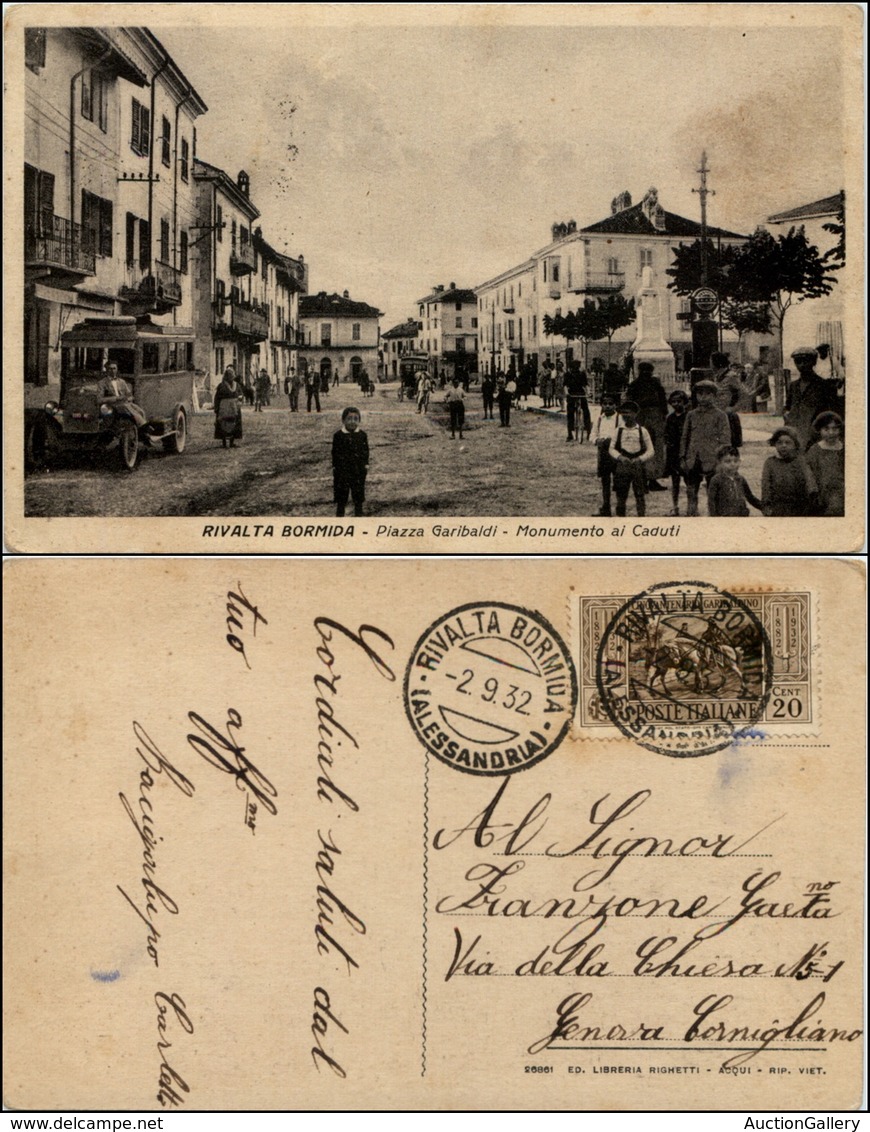 RIVALTA BORMIDA - Piazza Garibaldi - Monumento ai Caduti
Cordiali saluti dal
tuo aff.mo
Bacigalupo Carletto
RIVALTA BORMIDA
-2.9.32.
(ALESSANDRIA)
CINQUANTENARIO GARIBALDINO
1882
1932
1882
POSTE ITALIANE
CENT
20
RIVALTA BORMIDA
(ALESSANDRIA)
Al Signor
Franzone Gaeta no
Via della Chiesa N. 5-1
Genova Cornigliano
26861 ED. LIBRERIA RIGHETTI - ACQUI - RIP. VIET.
AuctionGallery